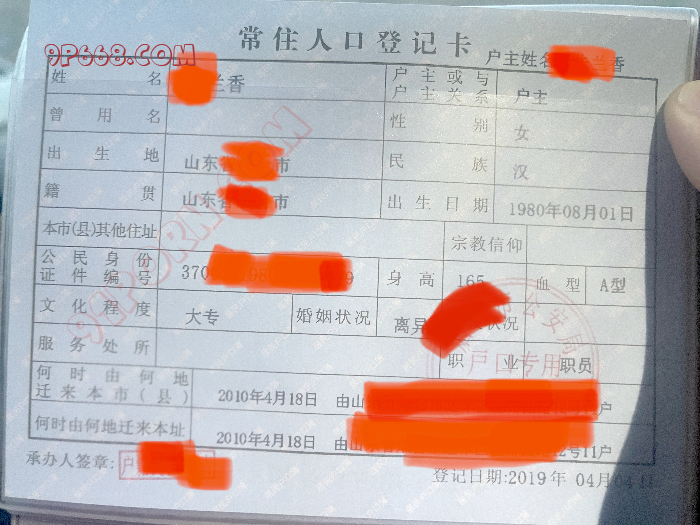 9P668.COM
常住人口登记卡
户主姓名 兰香
姓名 兰香 户主或与户主关系 户主
曾用名 性别 女
出生地 山东省 市 民族 汉
籍贯 山东省 市 出生日期 1980年08月01日
本市(县)其他住址 宗教信仰
公民身份证件编号 370 9 身高 165 血型 A型
文化程度 大专 婚姻状况 离异 状况
服务处所 职业 职员
何时由何地迁来本市(县) 2010年4月18日 由山 户
何时由何地迁来本址 2010年4月18日 由山 2号11户
承办人签章: 户
登记日期:2019年 04月04日
公安局
户口专用
91PORN.COM